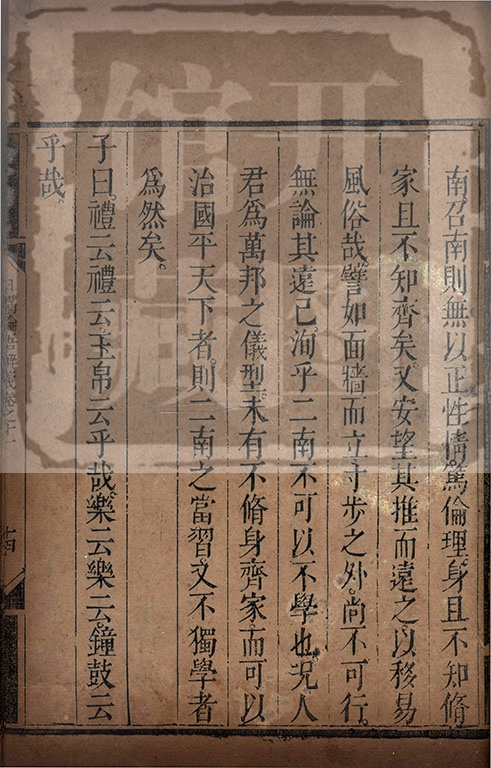 南召南則無以正性情篤倫理身且不知脩
家且不知齊矣又安望其推而遠之以移易
風俗哉譬如面牆而立寸步之外尚不可行
無論其遠已洵乎二南不可以不學也況人
君為萬邦之儀型未有不脩身齊家而可以
治國平天下者則二南之當習又不獨學者
為然矣
子曰禮云禮云玉帛云乎哉樂云樂云鐘鼓云
乎哉